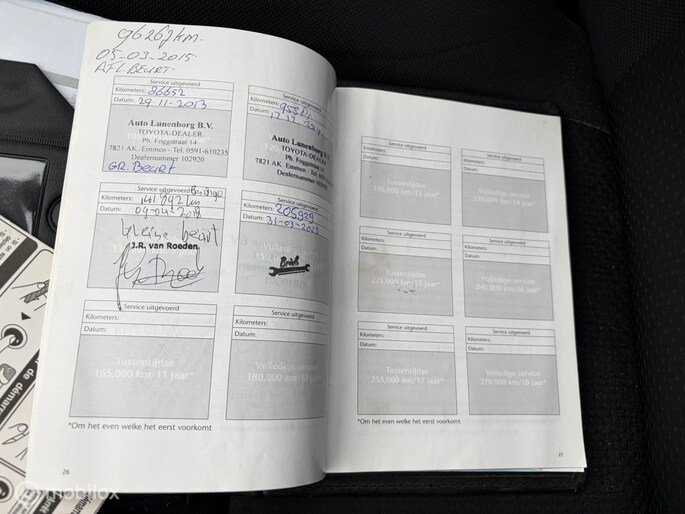 96267km.
05-03-2015
AFL.BEURT.
Service uitgevoerd
Kilometers: 86652
Datum: 29-11-2013
Auto Lunenborg B.V.
TOYOTA-DEALER
Ph. Foggstraat 14
7821 AK. Emmen - Tel. 0591-610235
Dealernummer 102920
GR. BEURT
Service uitgevoerd
Kilometers:
Datum:
Auto Lunenborg B.V.
TOYOTA-DEALER
Ph. Foggstraat 14
7821 AK. Emmen - Tel. 0591-610235
Dealernummer 102920
Service uitgevoerd
Kilometers: 141892 km
Datum:
kleine beurt
J.R. van Roeden
Service uitgevoerd
Kilometers: 206929
Datum: 31-03-2023
Service uitgevoerd
Kilometers:
Datum:
Tussentijdse
165,000 km/11 jaar*
Service uitgevoerd
Kilometers:
Datum:
Volledige service
180,000 km/12 jaar*
*Om het even welke het eerst voorkomt
26
Service uitgevoerd
Kilometers:
Datum:
Tussentijdse
195,000 km/13 jaar*
Service uitgevoerd
Kilometers:
Datum:
Volledige service
210,000 km/14 jaar*
Service uitgevoerd
Kilometers:
Datum:
Tussentijdse
225,000 km/15 jaar*
Service uitgevoerd
Kilometers:
Datum:
Volledige service
240,000 km/16 jaar*
Service uitgevoerd
Kilometers:
Datum:
Tussentijdse
255,000 km/17 jaar*
Service uitgevoerd
Kilometers:
Datum:
Volledige service
270,000 km/18 jaar*
*Om het even welke het eerst voorkomt
27
mobilox